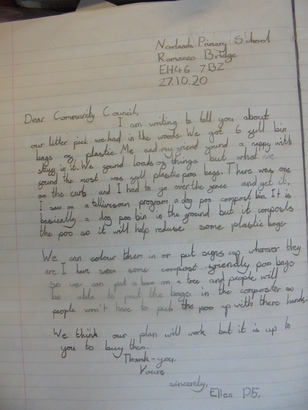 Primary School
Romanno Bridge
EH46 7BZ
27.10.20
Dear Community Council,
I am writing to tell you about
our litter pick we had in the woods. We got 6 full bin
bags of plastic. Me and my friend found a nappy with
in it. We found loads of things but what we
found the most was full plastic poo bags. There was one
on the curb and I had to go over the fence and get it,
I saw on a television program a dog poo compost bin. It is
basically a dog poo bin in the ground but it composts
the poo so it will help reduse some plastic bags.
We can colour them in or put signs up wherever they
are I have seen some compost friendly poo bags
so we can put a box on a tree and people will
be able to put the bags in the composter so
people won't have to pick the poo up with there hands.
We think our plan will work but it is up to
you to buy them.
Thank-you.
Yours
sincerely,
Ellen P5.